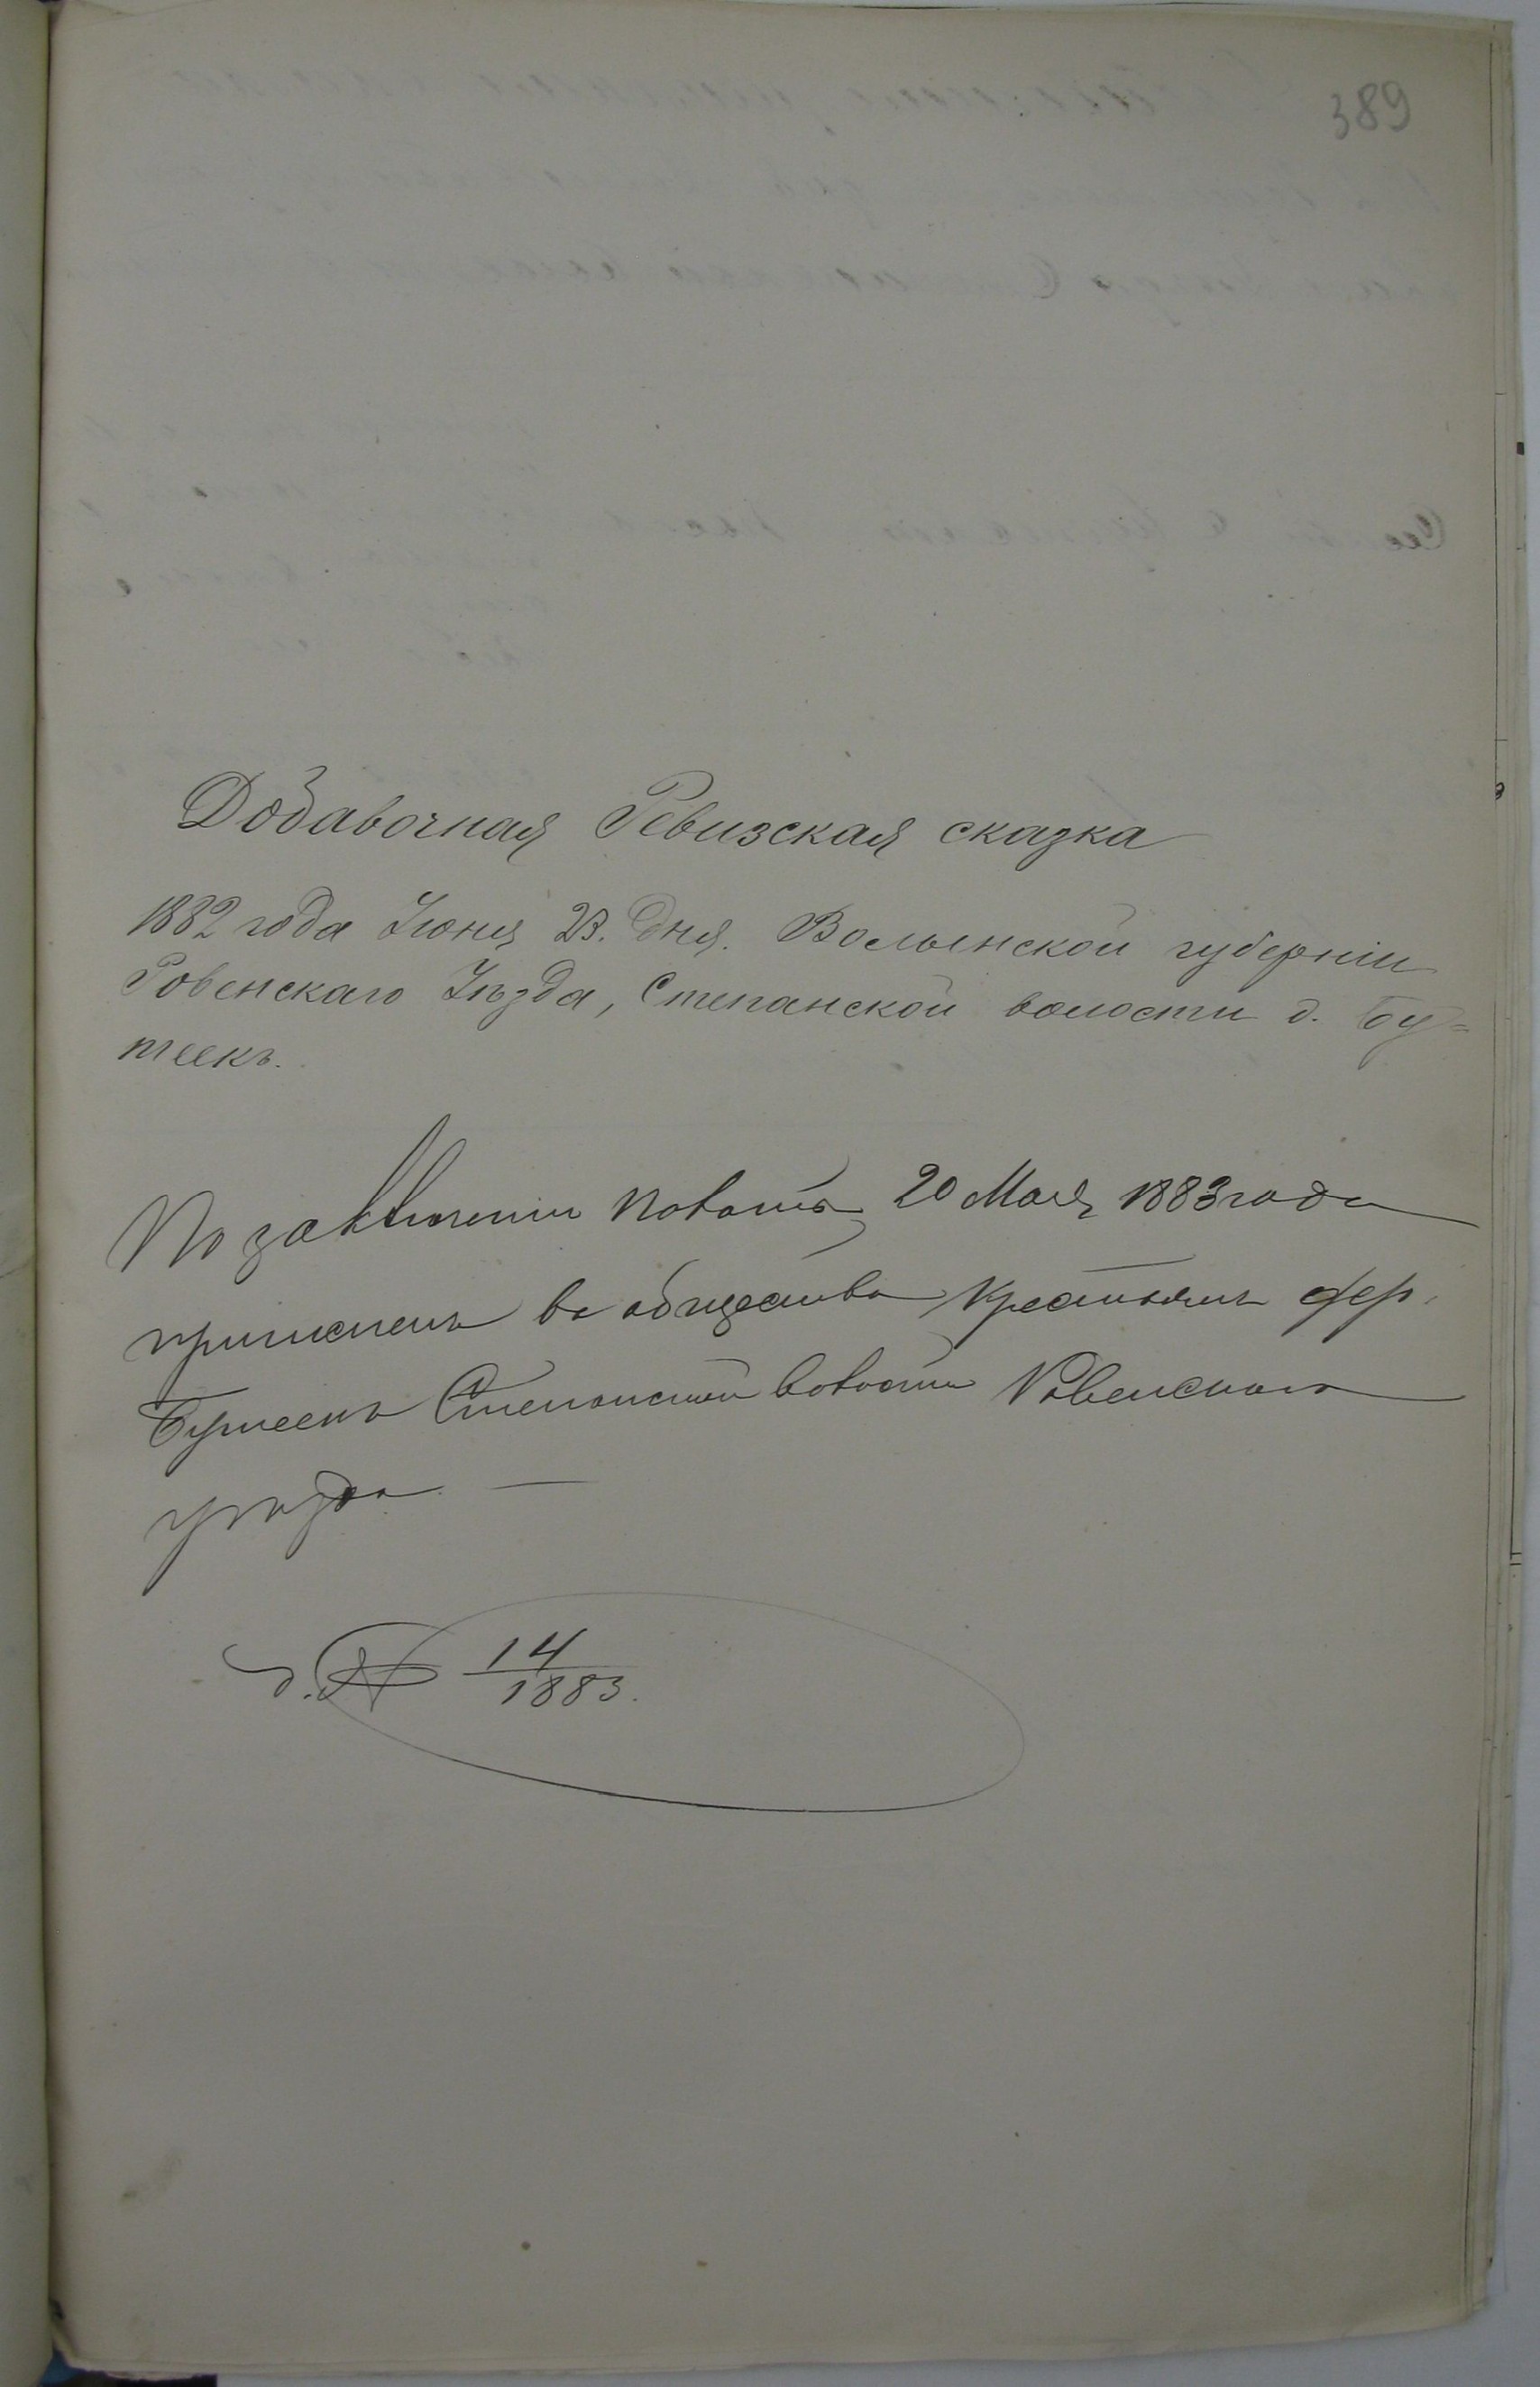 389
Добавочная Ревизская сказка
1882 года Іюня 23. дня. Волынской губерніи
Ровенскаго Уѣзда, Степанской волости д. Бу=
теекъ.
По заключенію Палаты 20 Мая 1883 года
причисленъ въ общество крестьянъ дер.
Бутеекъ Степанской волости Ровенскаго
уѣзда. —
14
1883.